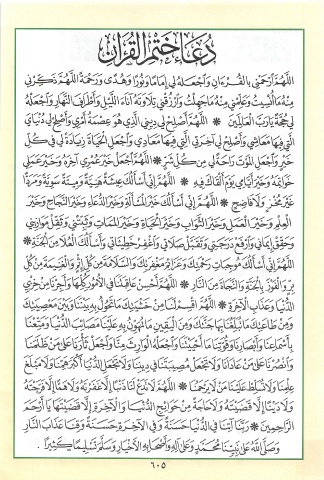 دُعَاءُ خَتْمِ الْقُرْآنِ
اللَّهُمَّ ارْحَمْنِي بِالْقُرْءَانِ وَاجْعَلْهُ لِي إِمَامًا وَنُورًا وَهُدًى وَرَحْمَةً اللَّهُمَّ ذَكِّرْنِي
مِنْهُ مَا نُسِّيتُ وَعَلِّمْنِي مِنْهُ مَا جَهِلْتُ وَارْزُقْنِي تِلَاوَتَهُ آنَاءَ اللَّيْلِ وَأَطْرَافَ النَّهَارِ وَاجْعَلْهُ
لِي حُجَّةً يَا رَبَّ الْعَالَمِينَ * اللَّهُمَّ أَصْلِحْ لِي دِينِي الَّذِي هُوَ عِصْمَةُ أَمْرِي وَأَصْلِحْ لِي دُنْيَايَ
الَّتِي فِيهَا مَعَاشِي وَأَصْلِحْ لِي آخِرَتِي الَّتِي فِيهَا مَعَادِي وَاجْعَلِ الْحَيَاةَ زِيَادَةً لِي فِي كُلِّ
خَيْرٍ وَاجْعَلِ الْمَوْتَ رَاحَةً لِي مِنْ كُلِّ شَرٍّ * اللَّهُمَّ اجْعَلْ خَيْرَ عُمْرِي آخِرَهُ وَخَيْرَ عَمَلِي
خَوَاتِمَهُ وَخَيْرَ أَيَّامِي يَوْمَ أَلْقَاكَ فِيهِ * اللَّهُمَّ إِنِّي أَسْأَلُكَ عِيشَةً هَنِيَّةً وَمِيتَةً سَوِيَّةً وَمَرَدًّا
غَيْرَ مُخْزٍ وَلَا فَاضِحٍ * اللَّهُمَّ إِنِّي أَسْأَلُكَ خَيْرَ الْمَسْأَلَةِ وَخَيْرَ الدُّعَاءِ وَخَيْرَ النَّجَاحِ وَخَيْرَ
الْعِلْمِ وَخَيْرَ الْعَمَلِ وَخَيْرَ الثَّوَابِ وَخَيْرَ الْحَيَاةِ وَخَيْرَ الْمَمَاتِ وَثَبِّتْنِي وَثَقِّلْ مَوَازِينِي
وَحَقِّقْ إِيمَانِي وَارْفَعْ دَرَجَتِي وَتَقَبَّلْ صَلَاتِي وَاغْفِرْ خَطِيئَاتِي وَأَسْأَلُكَ الْعُلَا مِنَ الْجَنَّةِ *
اللَّهُمَّ إِنِّي أَسْأَلُكَ مُوجِبَاتِ رَحْمَتِكَ وَعَزَائِمَ مَغْفِرَتِكَ وَالسَّلَامَةَ مِنْ كُلِّ إِثْمٍ وَالْغَنِيمَةَ مِنْ كُلِّ
بِرٍّ وَالْفَوْزَ بِالْجَنَّةِ وَالنَّجَاةَ مِنَ النَّارِ * اللَّهُمَّ أَحْسِنْ عَاقِبَتَنَا فِي الْأُمُورِ كُلِّهَا وَأَجِرْنَا مِنْ خِزْيِ
الدُّنْيَا وَعَذَابِ الْآخِرَةِ * اللَّهُمَّ اقْسِمْ لَنَا مِنْ خَشْيَتِكَ مَا تَحُولُ بِهِ بَيْنَنَا وَبَيْنَ مَعْصِيَتِكَ
وَمِنْ طَاعَتِكَ مَا تُبَلِّغُنَا بِهَا جَنَّتَكَ وَمِنَ الْيَقِينِ مَا تُهَوِّنُ بِهِ عَلَيْنَا مَصَائِبَ الدُّنْيَا وَمَتِّعْنَا
بِأَسْمَاعِنَا وَأَبْصَارِنَا وَقُوَّتِنَا مَا أَحْيَيْتَنَا وَاجْعَلْهُ الْوَارِثَ مِنَّا وَاجْعَلْ ثَأْرَنَا عَلَى مَنْ ظَلَمَنَا
وَانْصُرْنَا عَلَى مَنْ عَادَانَا وَلَا تَجْعَلْ مُصِيبَتَنَا فِي دِينِنَا وَلَا تَجْعَلِ الدُّنْيَا أَكْبَرَ هَمِّنَا وَلَا مَبْلَغَ
عِلْمِنَا وَلَا تُسَلِّطْ عَلَيْنَا مَنْ لَا يَرْحَمُنَا * اللَّهُمَّ لَا تَدَعْ لَنَا ذَنْبًا إِلَّا غَفَرْتَهُ وَلَا هَمًّا إِلَّا فَرَّجْتَهُ
وَلَا دَيْنًا إِلَّا قَضَيْتَهُ وَلَا حَاجَةً مِنْ حَوَائِجِ الدُّنْيَا وَالْآخِرَةِ إِلَّا قَضَيْتَهَا يَا أَرْحَمَ
الرَّاحِمِينَ * رَبَّنَا آتِنَا فِي الدُّنْيَا حَسَنَةً وَفِي الْآخِرَةِ حَسَنَةً وَقِنَا عَذَابَ النَّارِ
وَصَلَّى اللَّهُ عَلَى نَبِيِّنَا مُحَمَّدٍ وَعَلَى آلِهِ وَأَصْحَابِهِ الْأَخْيَارِ وَسَلَّمَ تَسْلِيمًا كَثِيرًا .
٦٠٥